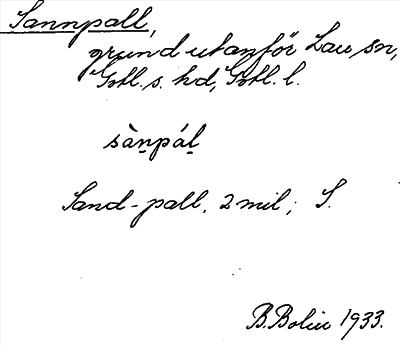 Sannpall,
grund utanför Lau sn,
Gotl. s. hd, Gotl. l.
sàn̠pál̠
Sand-pall, 2 mil; S.
B. Bolin 1933.